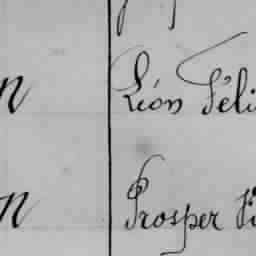 n Léon Féli
n Prosper